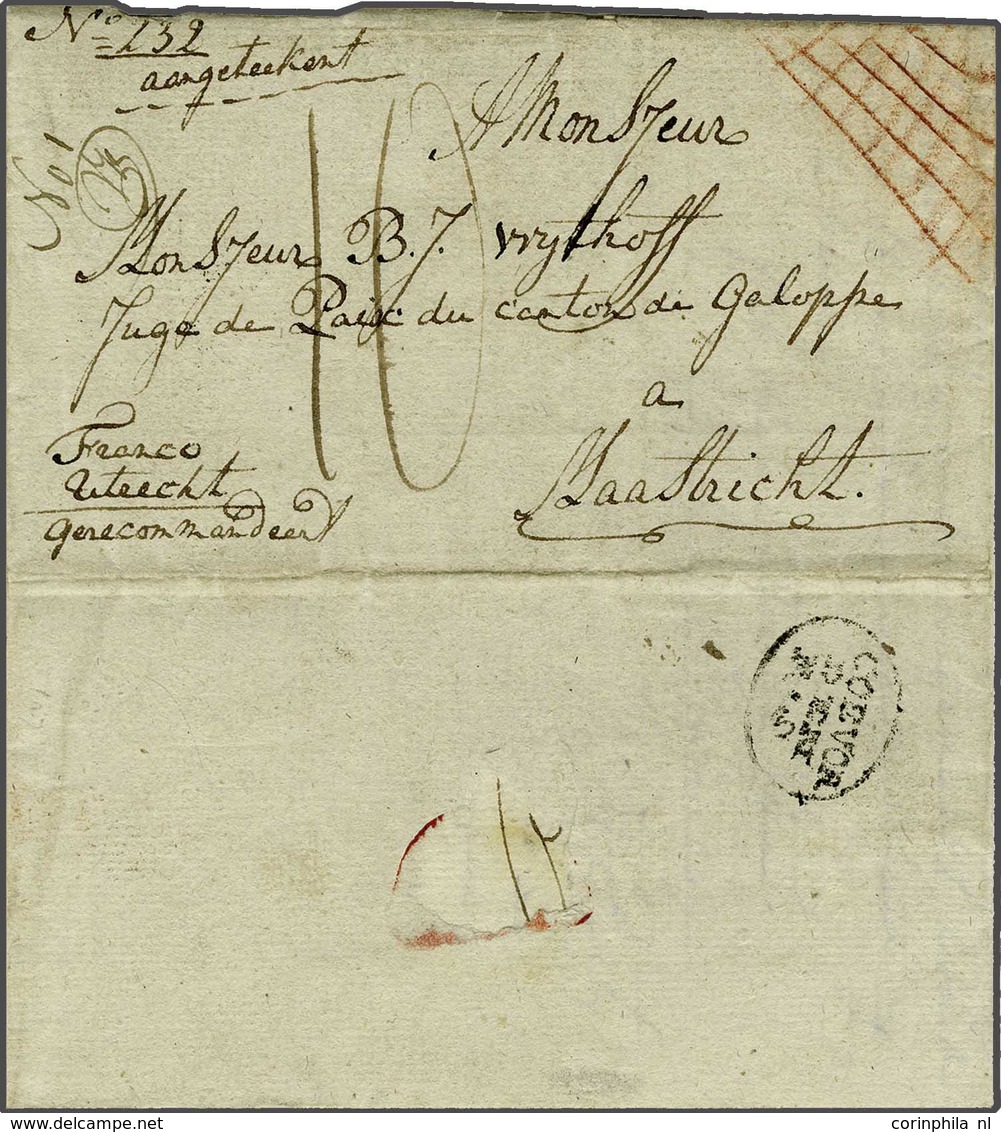 No 232
aangeteekent
No 1
A MonSieur
MonSieur B. J. wythoff
Juge de Paix du canton de Galoppe
a
MaaStricht.
10
Franco
Utrecht
gerecommandeert
COEVOR
corinphila nl